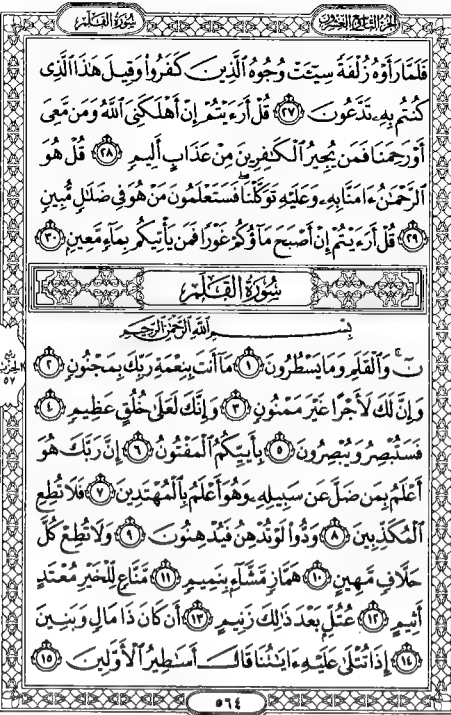 سُورَةُ القَلَمِ
الجزء التاسع والعشرون
فَلَمَّا رَأَوْهُ زُلْفَةً سِيٓـَٔتْ وُجُوهُ ٱلَّذِينَ كَفَرُوا۟ وَقِيلَ هَٰذَا ٱلَّذِى
كُنتُم بِهِۦ تَدَّعُونَ ٢٧ قُلْ أَرَءَيْتُمْ إِنْ أَهْلَكَنِىَ ٱللَّهُ وَمَن مَّعِىَ
أَوْ رَحِمَنَا فَمَن يُجِيرُ ٱلْكَٰفِرِينَ مِنْ عَذَابٍ أَلِيمٍ ٢٨ قُلْ هُوَ
ٱلرَّحْمَٰنُ ءَامَنَّا بِهِۦ وَعَلَيْهِ تَوَكَّلْنَا ۖ فَسَتَعْلَمُونَ مَنْ هُوَ فِى ضَلَٰلٍ مُّبِينٍ
٢٩ قُلْ أَرَءَيْتُمْ إِنْ أَصْبَحَ مَآؤُكُمْ غَوْرًا فَمَن يَأْتِيكُم بِمَآءٍ مَّعِينٍۭ ٣٠
سُورَةُ القَلَمِ
بِسْمِ ٱللَّهِ ٱلرَّحْمَٰنِ ٱلرَّحِيمِ
نٓ ۚ وَٱلْقَلَمِ وَمَا يَسْطُرُونَ ١ مَآ أَنتَ بِنِعْمَةِ رَبِّكَ بِمَجْنُونٍ ٢
وَإِنَّ لَكَ لَأَجْرًا غَيْرَ مَمْنُونٍ ٣ وَإِنَّكَ لَعَلَىٰ خُلُقٍ عَظِيمٍ ٤
فَسَتُبْصِرُ وَيُبْصِرُونَ ٥ بِأَييِّكُمُ ٱلْمَفْتُونُ ٦ إِنَّ رَبَّكَ هُوَ
أَعْلَمُ بِمَن ضَلَّ عَن سَبِيلِهِۦ وَهُوَ أَعْلَمُ بِٱلْمُهْتَدِينَ ٧ فَلَا تُطِعِ
ٱلْمُكَذِّبِينَ ٨ وَدُّوا۟ لَوْ تُدْهِنُ فَيُدْهِنُونَ ٩ وَلَا تُطِعْ كُلَّ
حَلَّافٍ مَّهِينٍ ١٠ هَمَّازٍ مَّشَّآءٍۭ بِنَمِيمٍ ١١ مَّنَّاعٍ لِّلْخَيْرِ مُعْتَدٍ
أَثِيمٍ ١٢ عُتُلٍّۭ بَعْدَ ذَٰلِكَ زَنِيمٍ ١٣ أَن كَانَ ذَا مَالٍ وَبَنِينَ
١٤ إِذَا تُتْلَىٰ عَلَيْهِ ءَايَٰتُنَا قَالَ أَسَٰطِيرُ ٱلْأَوَّلِينَ ١٥
ربع
الحزب
٥٧
٥٦٤